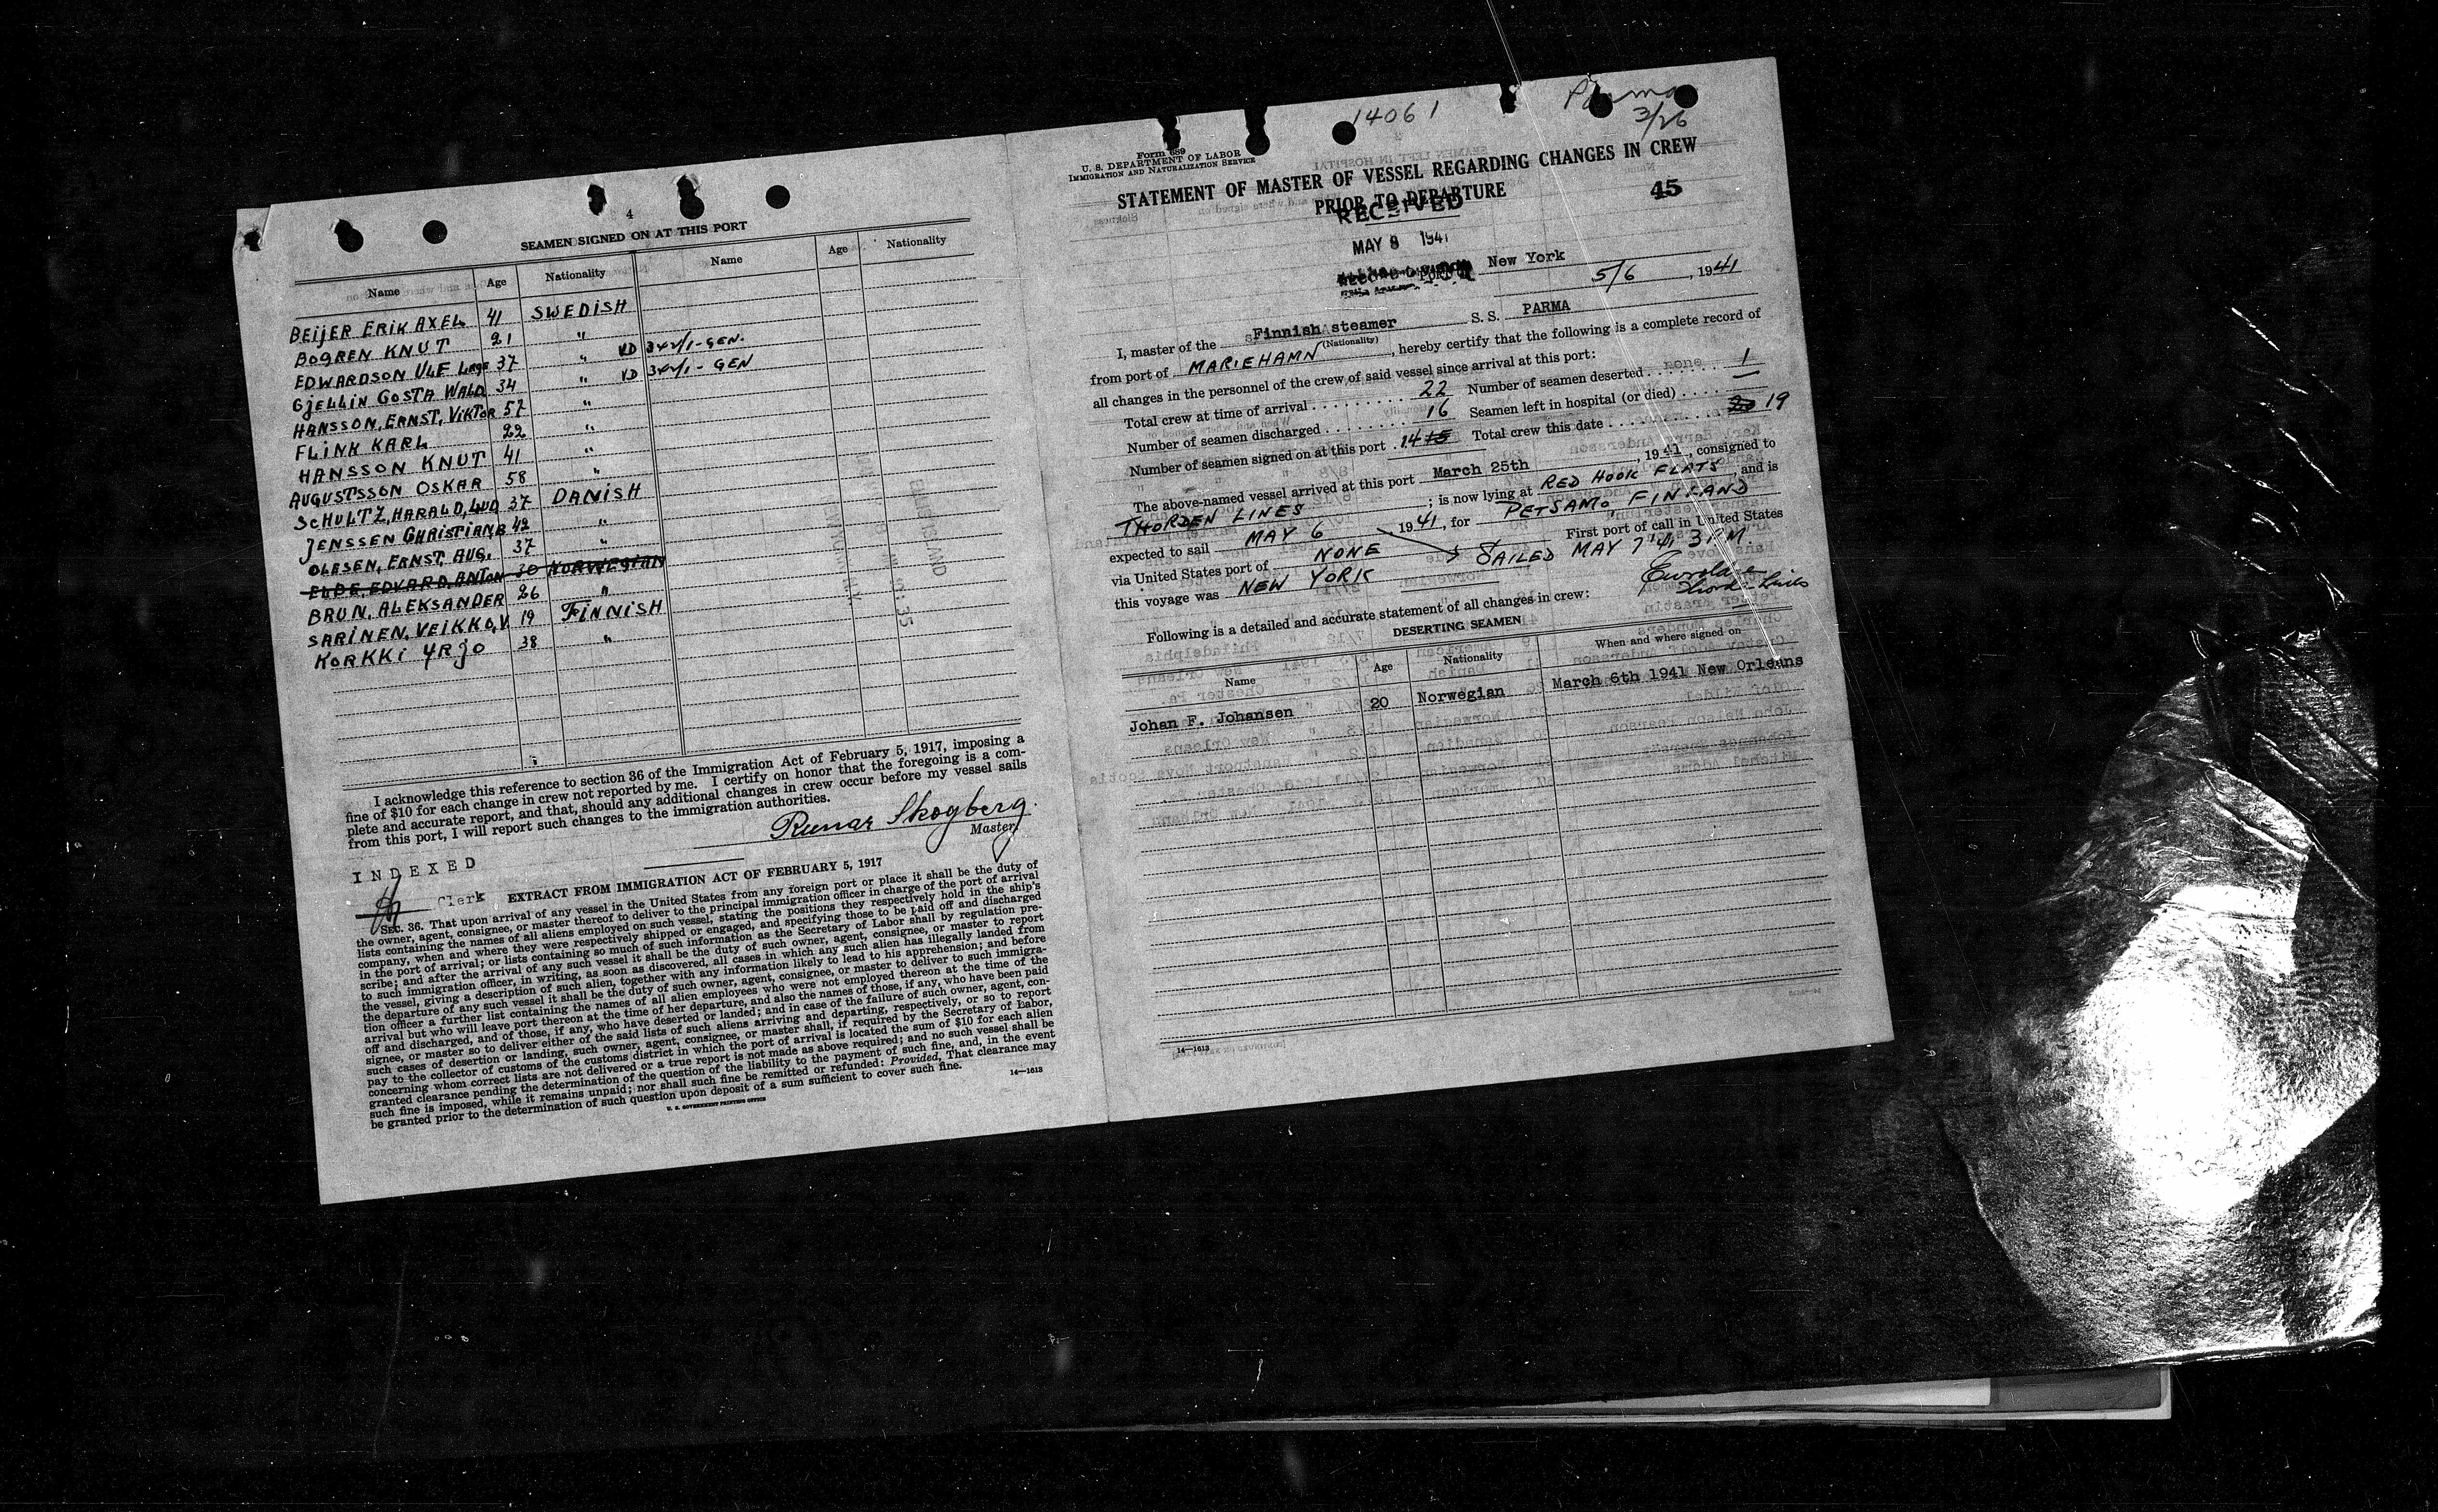 4
SEAMEN SIGNED ON AT THIS PORT
Name Age Nationality Name Age Nationality
BEIJER ERIK AXEL 41 SWEDISH
BOGREN KNUT 21 "
EDWARDSON ULF Lage 37 " VD 3421-GEN.
GJELLIN GOSTA WALD 34 " VD 3421-GEN
HANSSON, ERNST, VIKTOR 57 "
FLINK KARL 22 "
HANSSON KNUT 41 "
AUGUSTSSON OSKAR 58 "
SCHULTZ, HARALD, LUD 37 DANISH
JENSSEN CHRISTIAN B 42 "
OLESEN, ERNST, AUG. 37 "
ELDE, EDVARD, ANTON 30 NORWEGIAN
BRUN, ALEKSANDER 26 "
SARINEN, VEIKKO, V. 19 FINNISH
KORKKI YRJO 38 "
I acknowledge this reference to section 36 of the Immigration Act of February 5, 1917, imposing a
fine of $10 for each change in crew not reported by me. I certify on honor that the foregoing is a com-
plete and accurate report, and that, should any additional changes in crew occur before my vessel sails
from this port, I will report such changes to the immigration authorities.
Runar Skogberg.
Master.
INDEXED
Clerk
EXTRACT FROM IMMIGRATION ACT OF FEBRUARY 5, 1917
SEC. 36. That upon arrival of any vessel in the United States from any foreign port or place it shall be the duty of
the owner, agent, consignee, or master thereof to deliver to the principal immigration officer in charge of the port of arrival
lists containing the names of all aliens employed on such vessel, stating the positions they respectively hold in the ship's
company, when and where they were respectively shipped or engaged, and specifying those to be paid off and discharged
in the port of arrival; or lists containing so much of such information as the Secretary of Labor shall by regulation pre-
scribe; and after the arrival of any such vessel it shall be the duty of such owner, agent, consignee, or master to report
to such immigration officer, in writing, as soon as discovered, all cases in which any such alien has illegally landed from
the vessel, giving a description of such alien, together with any information likely to lead to his apprehension; and before
the departure of any such vessel it shall be the duty of such owner, agent, consignee, or master to deliver to such immigra-
tion officer a further list containing the names of all alien employees who were not employed thereon at the time of the
arrival but who will leave port thereon at the time of her departure, and also the names of those, if any, who have been paid
off and discharged, and of those, if any, who have deserted or landed; and in case of the failure of such owner, agent, con-
signee, or master so to deliver either of the said lists of such aliens arriving and departing, respectively, or so to report
such cases of desertion or landing, such owner, agent, consignee, or master shall, if required by the Secretary of Labor,
pay to the collector of customs of the customs district in which the port of arrival is located the sum of $10 for each alien
concerning whom correct lists are not delivered or a true report is not made as above required; and no such vessel shall be
granted clearance pending the determination of the question of the liability to the payment of such fine, and, in the event
such fine is imposed, while it remains unpaid; nor shall such fine be remitted or refunded: Provided, That clearance may
be granted prior to the determination of such question upon deposit of a sum sufficient to cover such fine.
14—1613
U. S. GOVERNMENT PRINTING OFFICE
14061
Parma
3/26
Form 689
U. S. DEPARTMENT OF LABOR
IMMIGRATION AND NATURALIZATION SERVICE
STATEMENT OF MASTER OF VESSEL REGARDING CHANGES IN CREW
PRIOR TO DEPARTURE
45
RECEIVED
MAY 8 1941
PORT New York
5/6, 1941
I, master of the Finnish steamer S. S. PARMA
(Nationality)
from port of MARIEHAMN, hereby certify that the following is a complete record of
all changes in the personnel of the crew of said vessel since arrival at this port:
Total crew at time of arrival 22 Number of seamen deserted 1
Number of seamen discharged 16 Seamen left in hospital (or died) —
Number of seamen signed on at this port 14 15 Total crew this date 20 19
The above-named vessel arrived at this port March 25th, 1941, consigned to
THORDEN LINES; is now lying at RED HOOK FLATS, and is
expected to sail MAY 6, 1941, for PETSAMO, FINLAND
via United States port of NONE First port of call in United States
SAILED MAY 7 '41 3 P.M.
this voyage was NEW YORK
Following is a detailed and accurate statement of all changes in crew:
DESERTING SEAMEN
Name Age Nationality When and where signed on
Johan F. Johansen 20 Norwegian March 6th 1941 New Orleans
14—1613